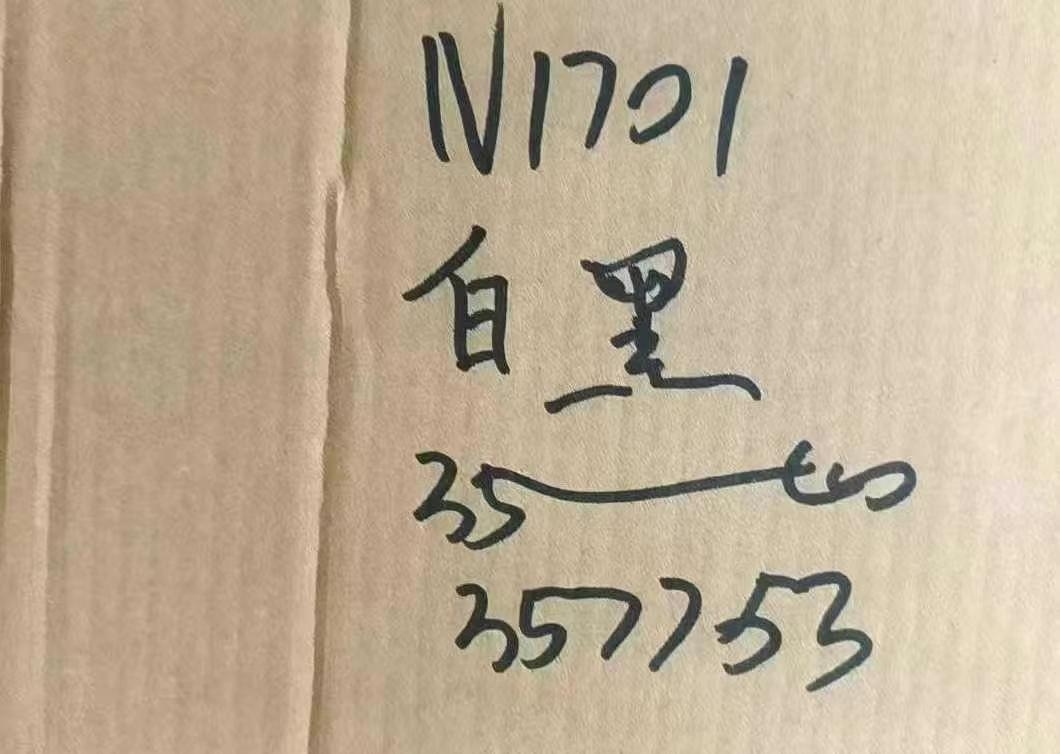 N1701
白黑
35—40
357753